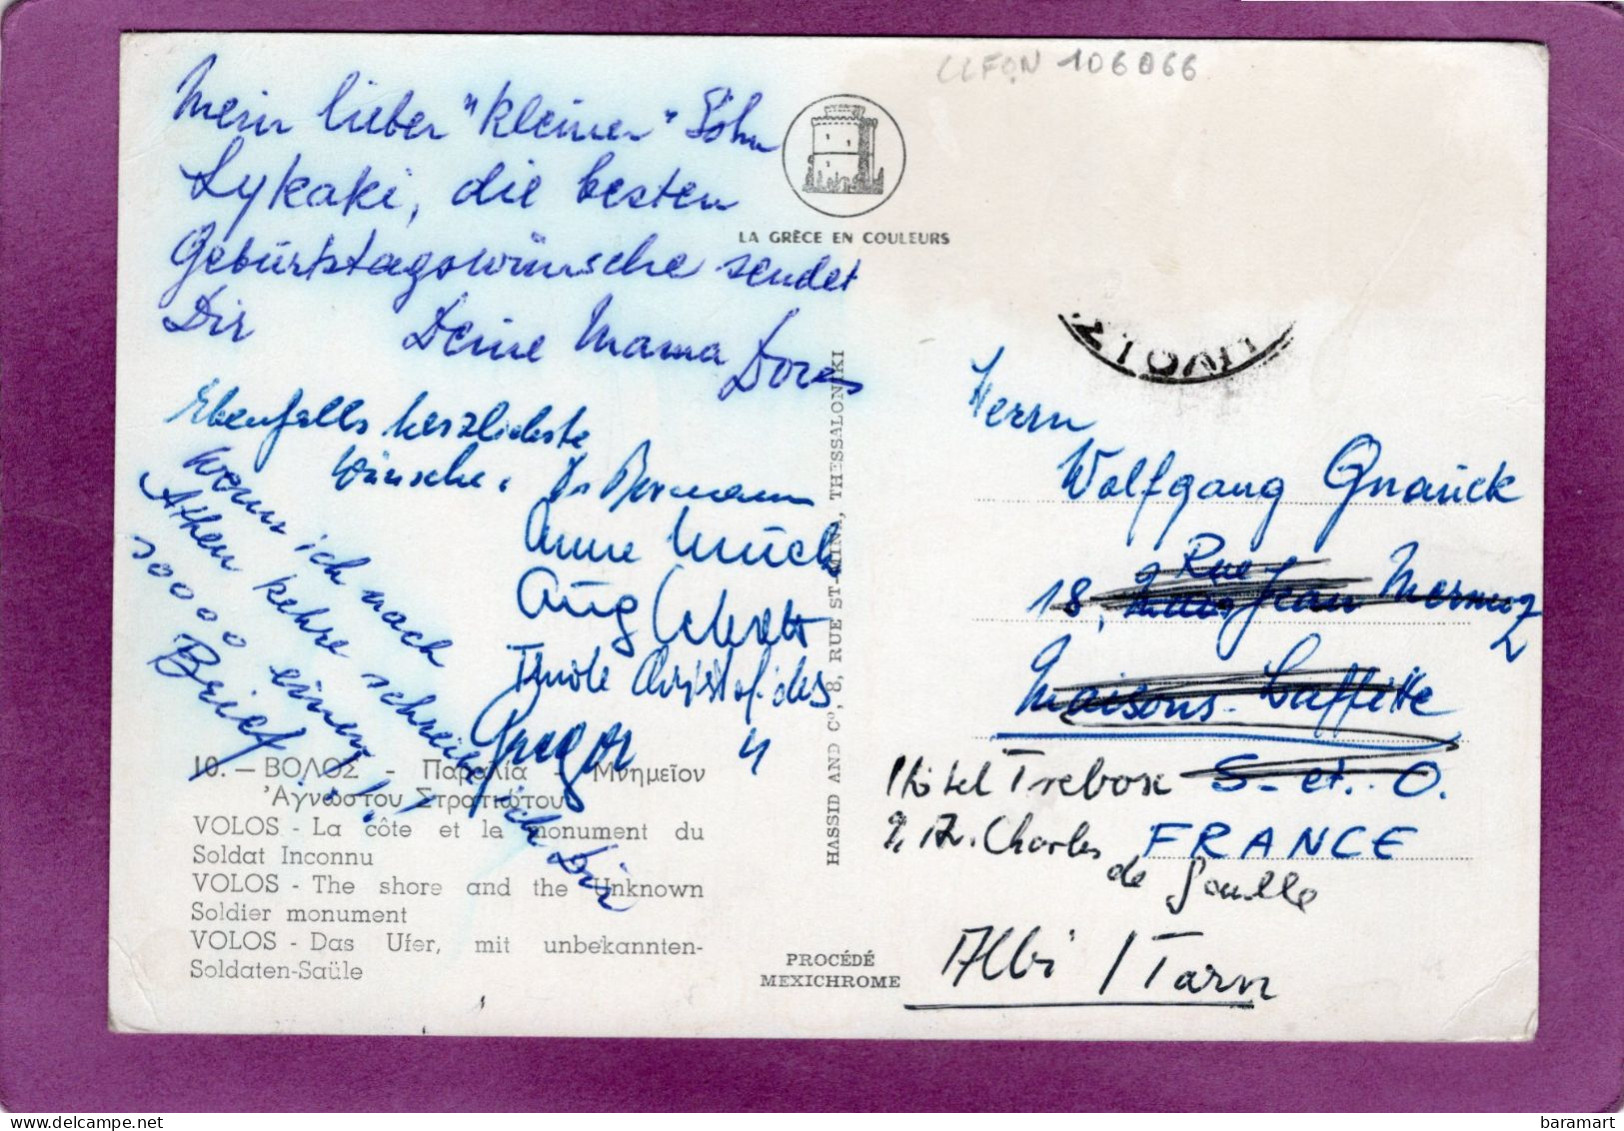 LLFON 106066
Mein lieber "kleiner" Sohn
Lykaki, die besten
Geburtstagswünsche sendet
Dir Deine Mama Dores
Ebenfalls herzlichste
Wünsche.
Anne
Aug
Gregor
wenn ich nach
Athen kehre schreibe ich Dir
soooo einen
Brief!!!
10. — ΒΟΛΟΣ - Παραλία - Μνημεῖον
Ἀγνώστου Στρατιώτου
VOLOS - La côte et le monument du
Soldat Inconnu
VOLOS - The shore and the Unknown
Soldier monument
VOLOS - Das Ufer, mit unbekannten-
Soldaten-Saüle
LA GRÈCE EN COULEURS
HASSID AND C°, 8, RUE ST-MINA, THESSALONIKI
PROCÉDÉ
MEXICHROME
Herrn
Wolfgang Gnauck
Rue
18, Jean Mermoz
Maisons-Laffitte
S. et. O.
Hôtel Trebosc
FRANCE
9, Av. Charles
de Gaulle
Albi / Tarn
baramart